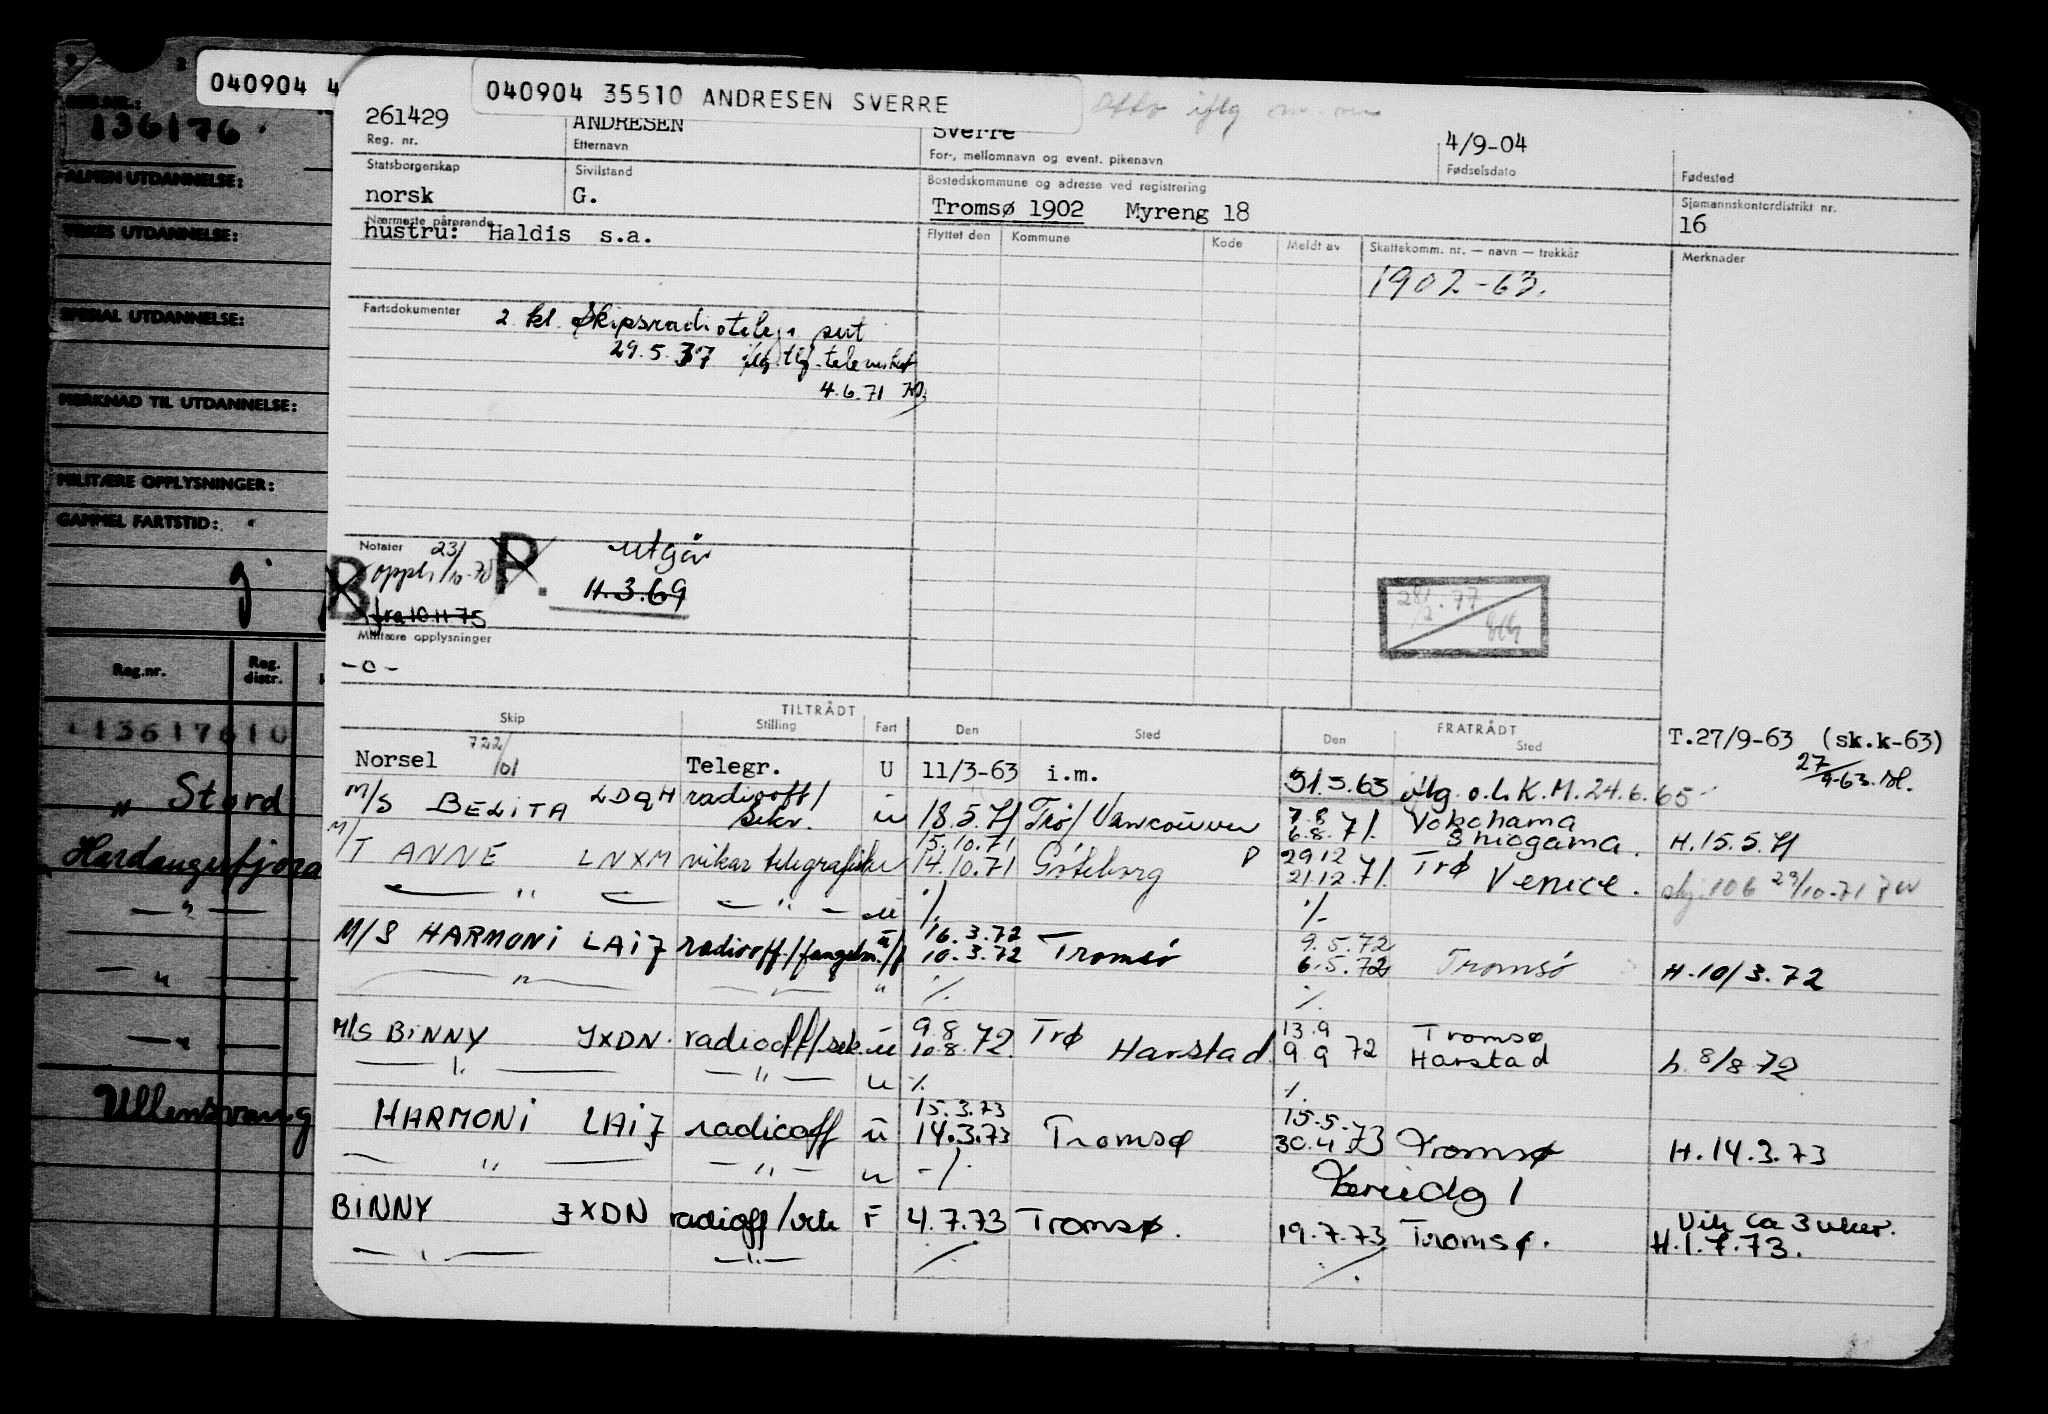 040904 4
REG.NR.:
136176
ALMEN UTDANNELSE:
YRKES UTDANNELSE:
SPESIAL UTDANNELSE:
MERKNAD TIL UTDANNELSE:
MILITÆRE OPPLYSNINGER:
GAMMEL FARTSTID:
Reg.nr. Reg. distr.
13617610
" Stord
Hardangerfjord
— " —
— " —
— " —
Ullensvang
040904 35510 ANDRESEN SVERRE
261429 ANDRESEN Sverre 4/9-04
Reg. nr. Etternavn For-, mellomnavn og event. pikenavn Fødselsdato Fødested
Statsborgerskap Sivilstand Bostedskommune og adresse ved registrering Sjømannskontordistrikt nr.
norsk G. Tromsø 1902 Myreng 18 16
Nærmeste pårørende Flyttet den Kommune Kode Meldt av Skattekomm. nr. — navn — trekkår Merknader
hustru: Haldis s.a.
1902-63.
Fartsdokumenter 2. kl. Skipsradiotelegr
29.5.37
4.6.71
Notater 23/10-70 P. utgår
B H.3.69
fra 10.11 75
Militære opplysninger
-0-
28/2.77
TILTRÅDT FRATRÅDT
Skip Stilling Fart Den Sted Den Sted
T.27/9-63 (sk.k-63)
Norsel 722/01 Telegr. U 11/3-63 i.m. 31.3.63 iflg. o.l. K.M. 24.6.65 27/9-63.
M/S BELITA LDQH radiooff/ sekr. u 18.5.71 Trø/Vancouver 7.8 6.8.71. Yokohama Shiogama. H.15.5.71
M/T ANNE LNXM vikar telegrafist u 15.10.71 14.10.71 Göteborg P 29.12 21.12.71. Trø Venice. 106 29/10-71
— " — — " — u ./. ./.
M/S HARMONI LAIJ radiooff. u/f 16.3.72 10.3.72 Tromsø 9.5.72 6.5.72 Tromsø H.10/3.72
— " — — " — " ./. ./.
M/S BINNY JXDN. radiooff/sek. u 9.8 10.8.72. Trø Harstad 13.9 9.9 72 Tromsø Harstad h. 8/8 72
— " — — " — u ./. ./.
HARMONI LAIJ radiooff u 15.3.73 14.3.73 Tromsø 15.5.73 30.4.73 Tromsø H.14.3.73
— " — — " — u -/.
BINNY JXDN radioff/vik F 4.7.73 Tromsø. 19.7.73 Tromsø. Vik ca 3 uker. H.1.7.73.
— " — — " — ./. ./.